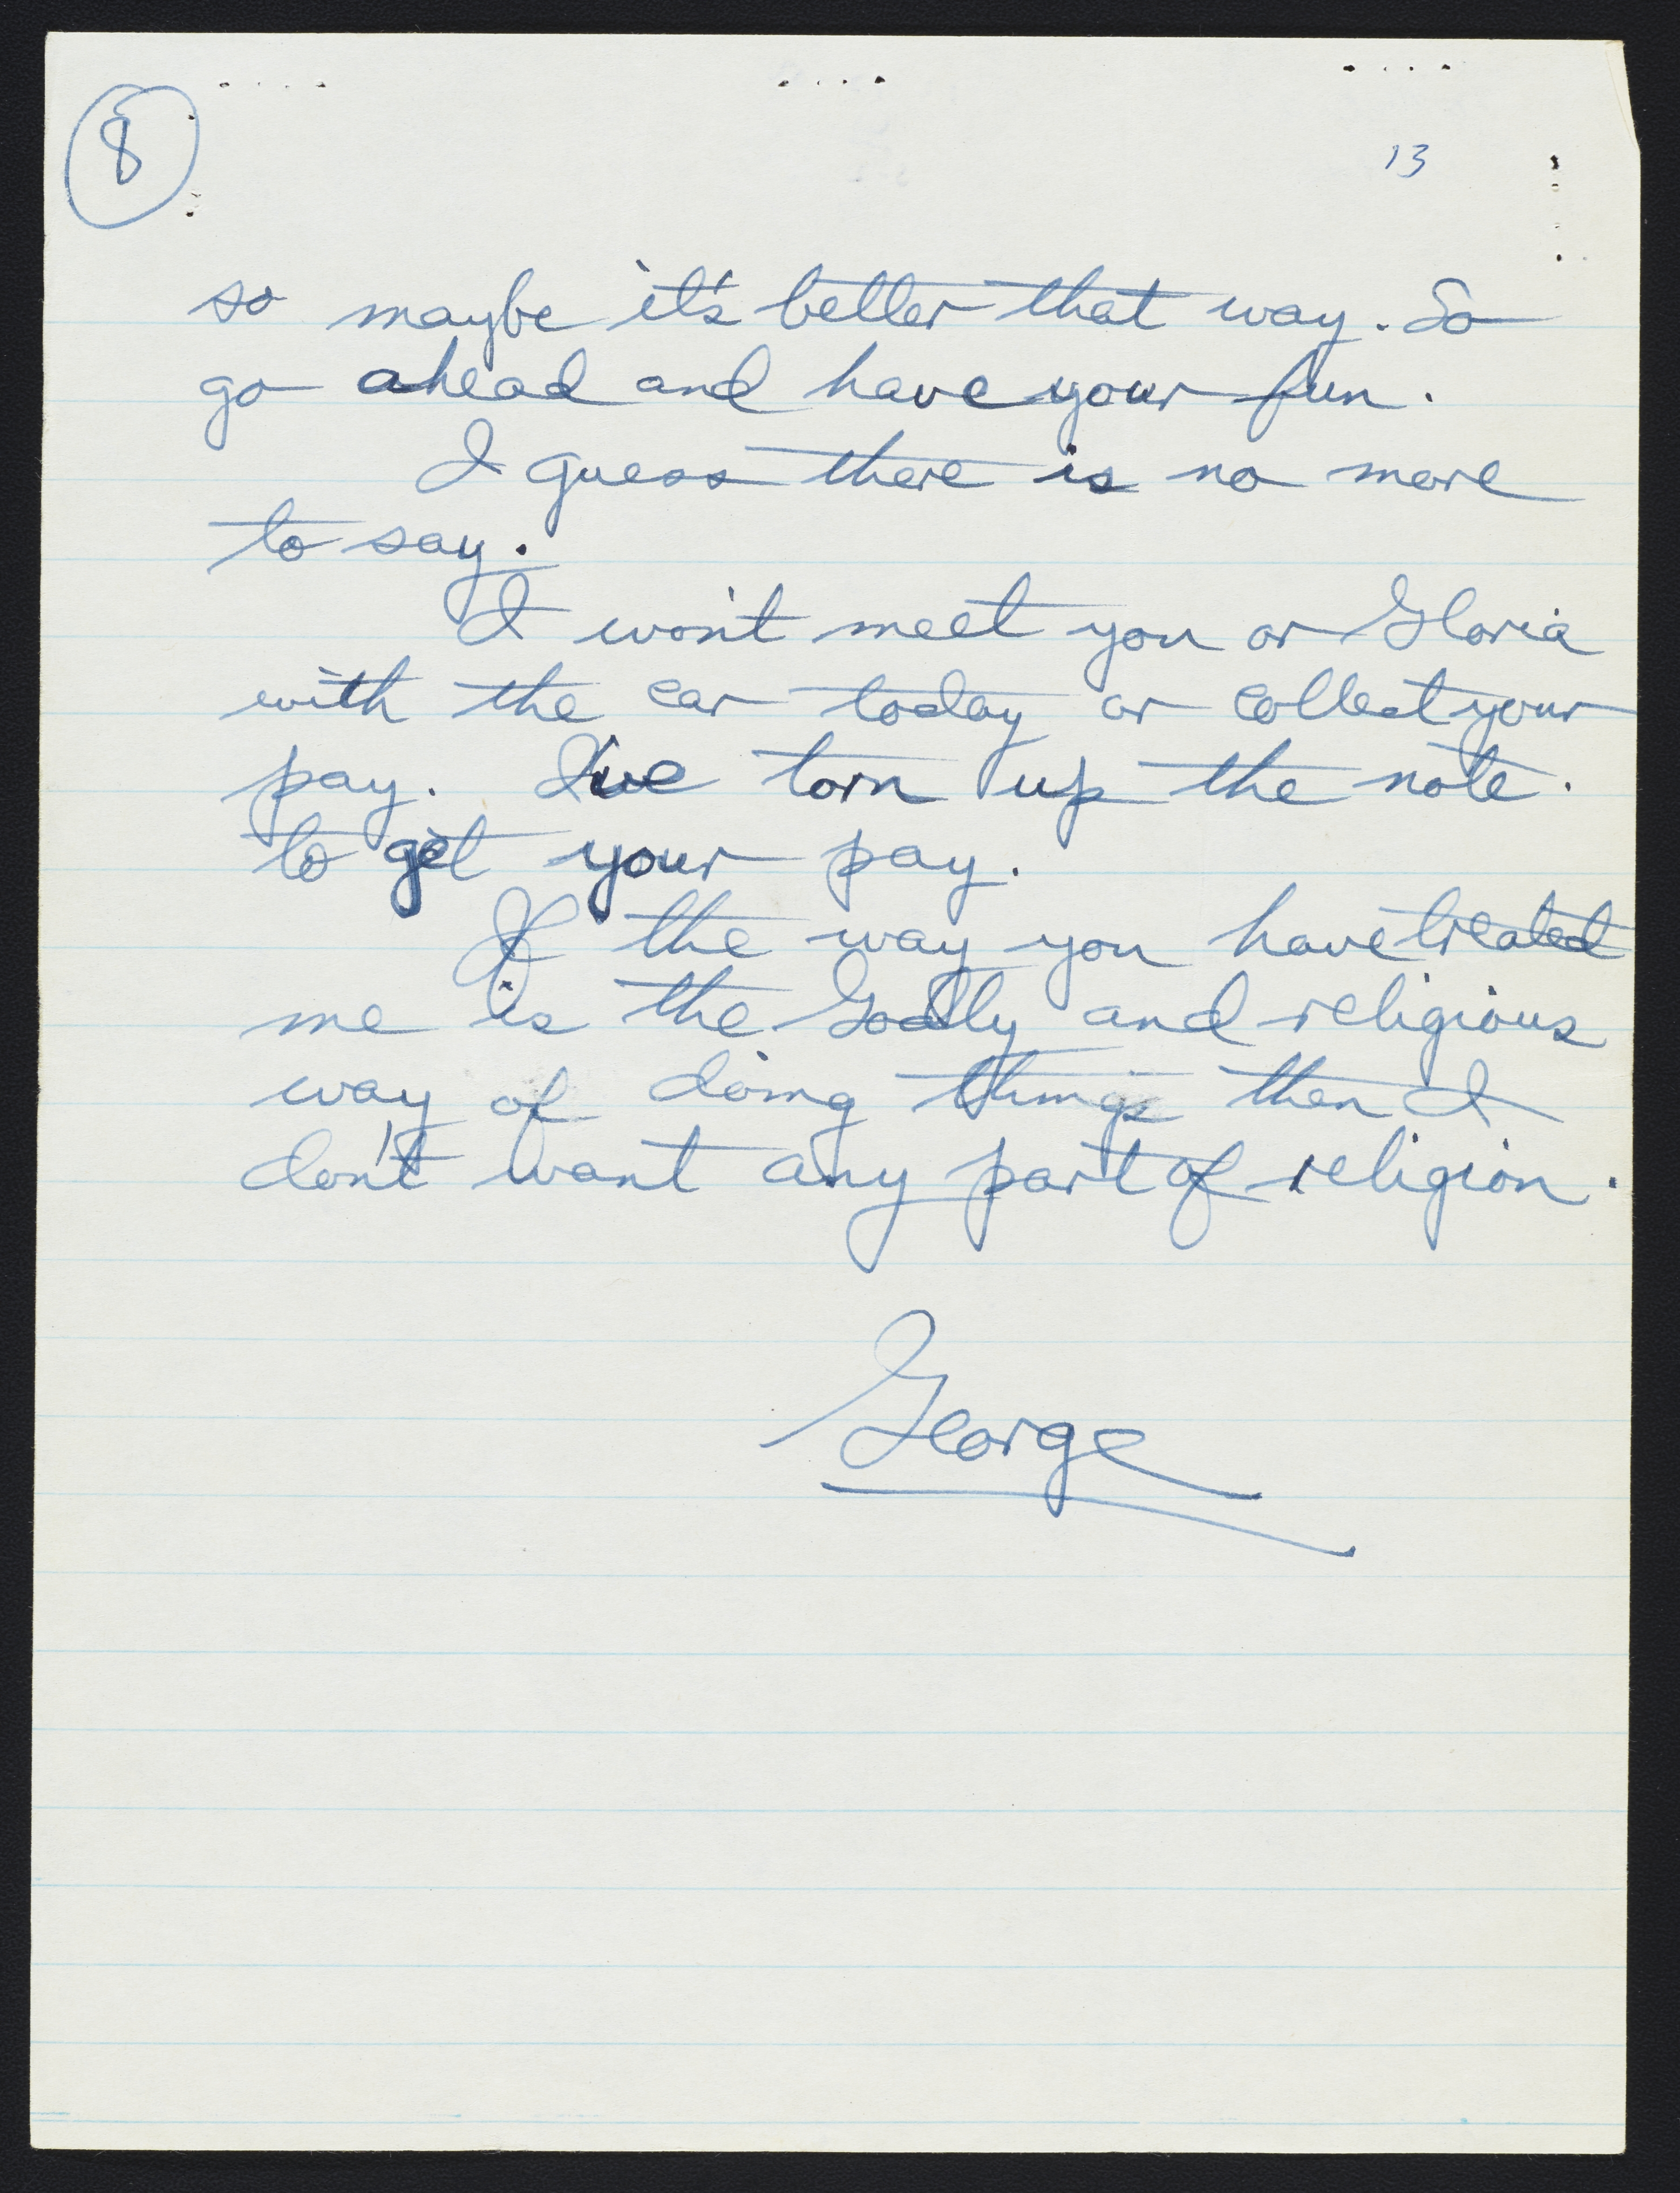 8
13
so maybe it's better that way. So
go ahead and have your fun.
I guess there is no more
to say.
I won't meet you or Gloria
with the car today or collect your
pay. I've torn up the note.
to get your pay.
If the way you have treated
me is the Godly and religious
way of doing things then I
don't want any part of religion.
George